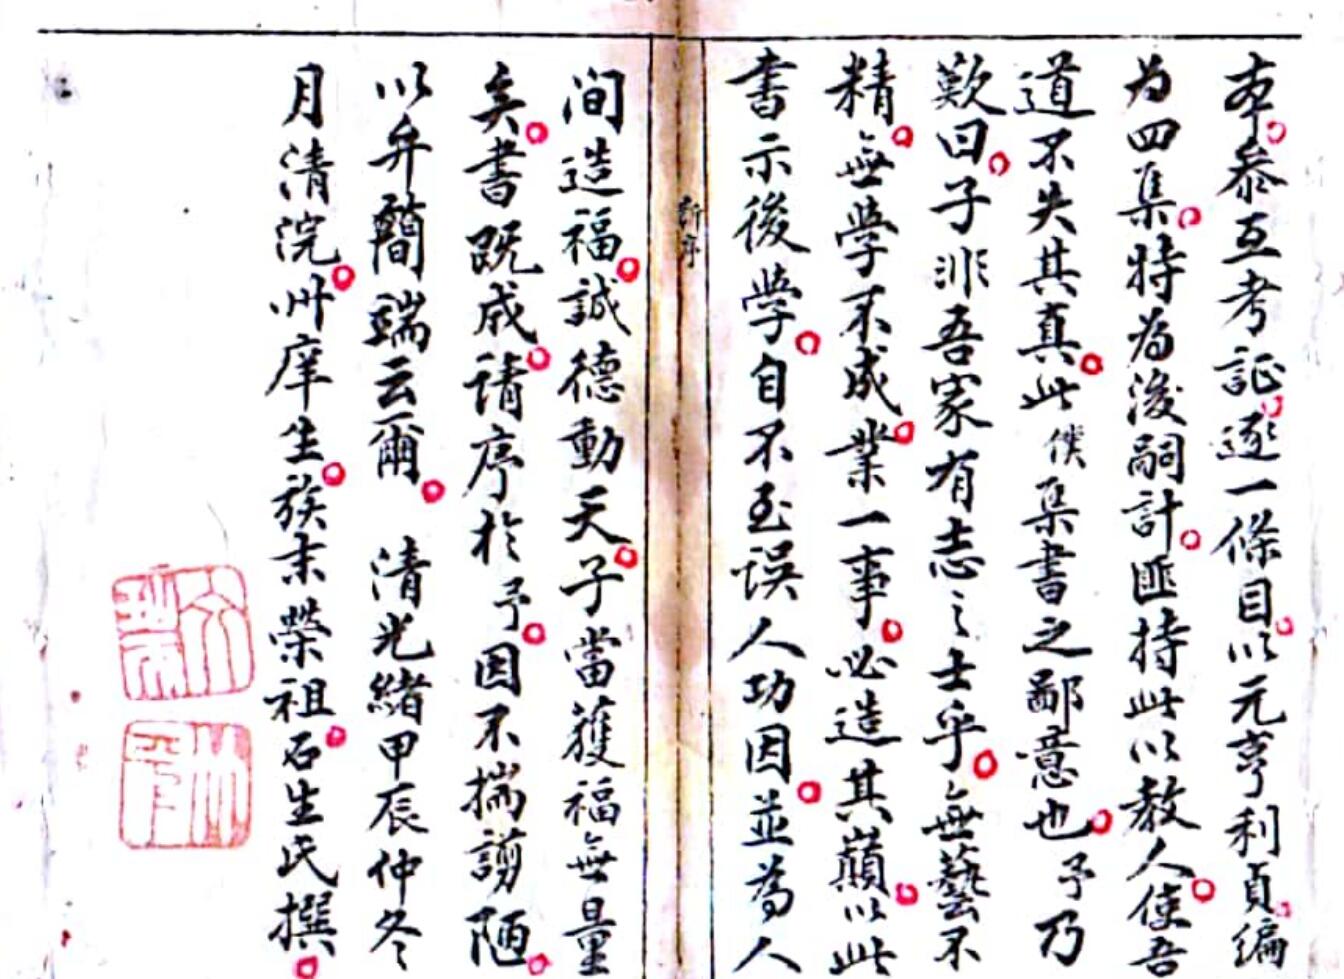 本參互考証逐一條目以元亨利貞編
為四集特為後嗣計匪持此以教人使吾
道不失其真此僕集書之鄙意也予乃
歎曰子非吾家有志之士乎無藝不
精無學不成業一事必造其巔以此
書示後學自不至误人功因並為人
新序
间造福誠德動天子當獲福無量
矣書既成請序於予因不揣謭陋
以弁簡端云爾 清光緒甲辰仲冬
月清浣州庠生族末榮祖石生氏撰